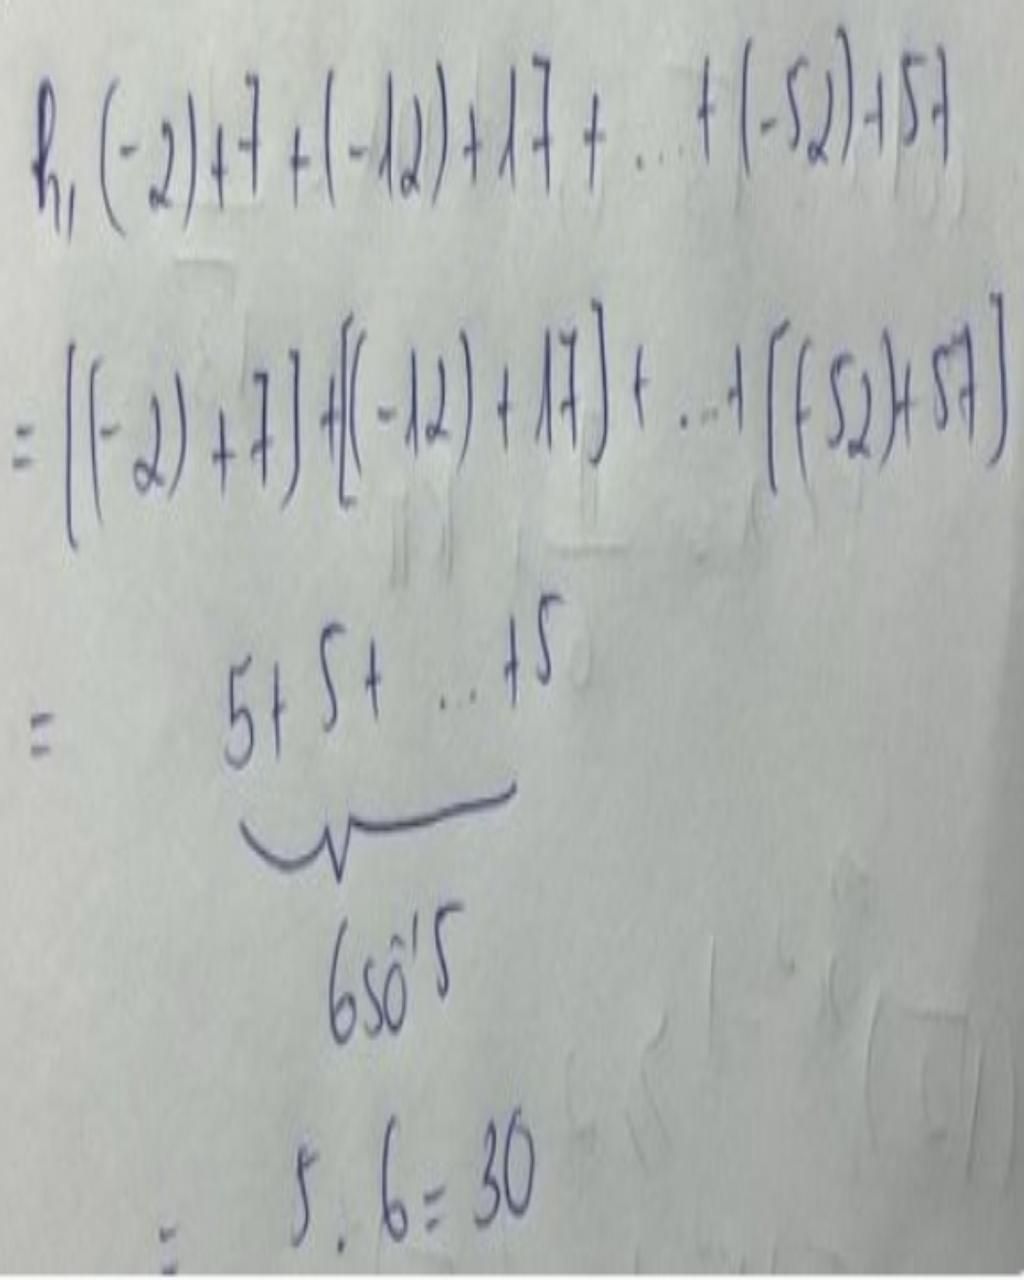 h, (-2)+7+(-12)+17+...+(-52)+57
= [(-2)+7]+[(-12)+17]+...+[(-52)+57]
= 5+5+...+5
6 số 5
= 5.6=30